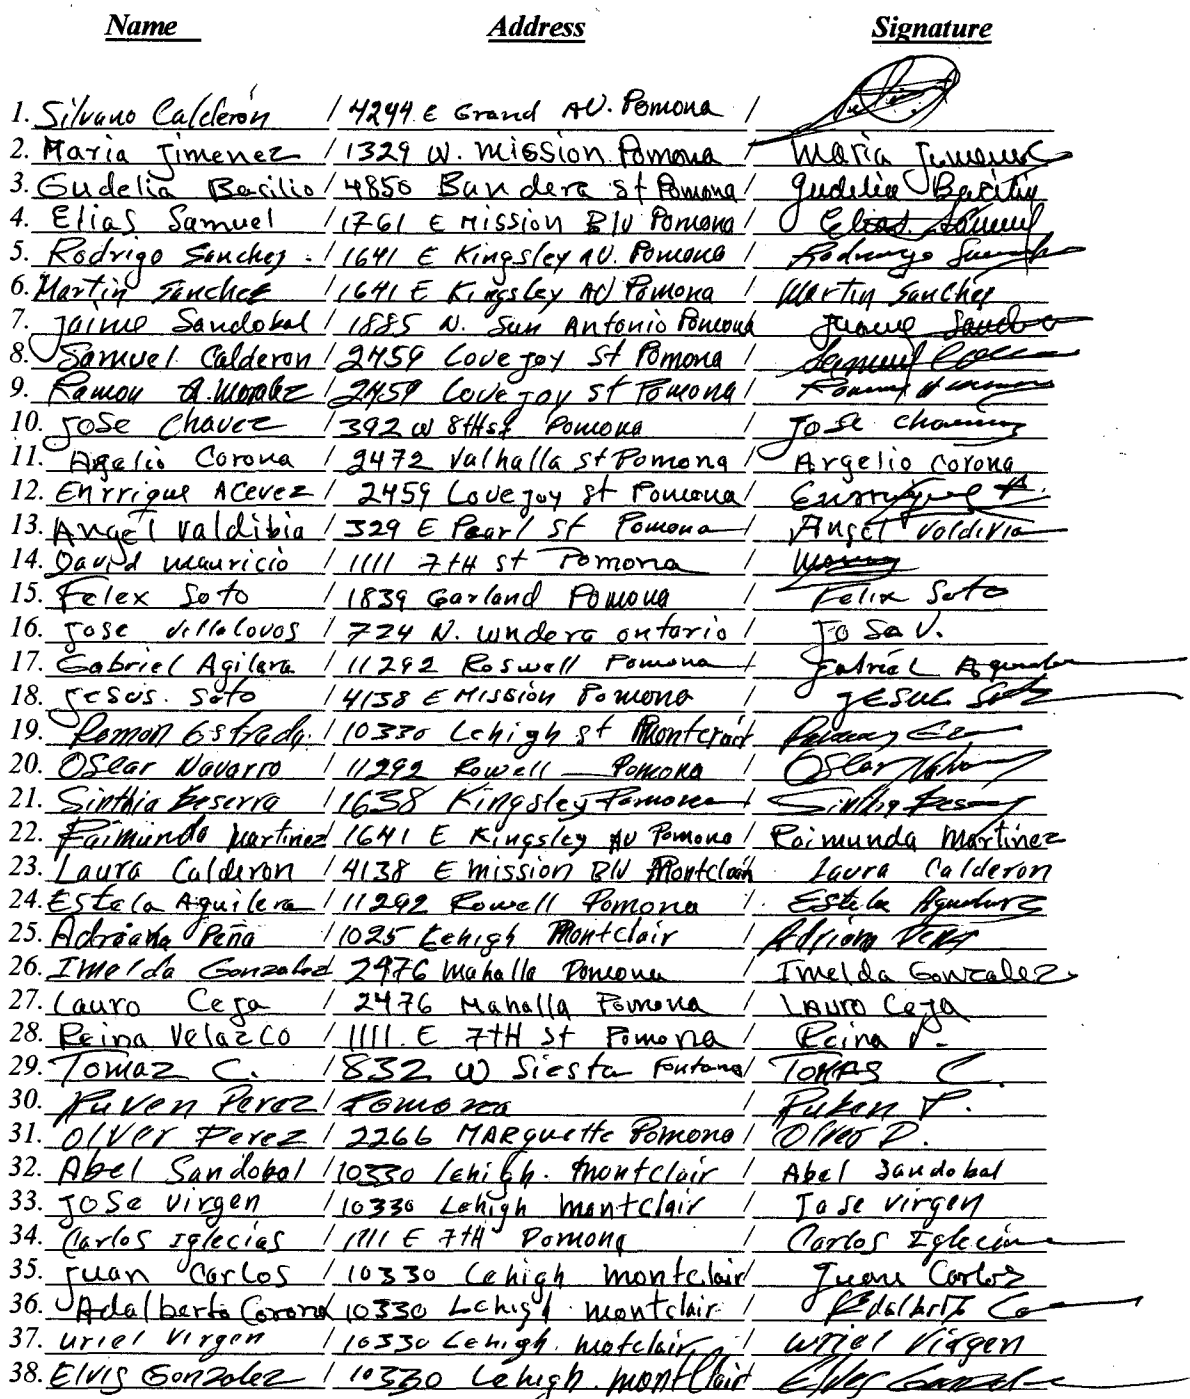 Name Address Signature
1. Silvano Calderón / 4294 E Grand AV. Pomona /
2. Maria Jimenez / 1329 W. Mission Pomona / Maria Jimenez
3. Gudelia Basilio / 4850 Bandera st Pomona / Gudelia Basilio
4. Elias Samuel / 1761 E Mission Blv Pomona / Elias Samuel
5. Rodrigo Sanchez / 1641 E Kingsley AV. Pomona / Rodrigo
6. Martin Sanchez / 1641 E Kingsley AV Pomona / Martin Sanchez
7. Jaime Sandobal / 1885 N. San Antonio Pomona Jaime
8. Samuel Calderon / 2459 Lovejoy St Pomona / Samuel
9. Ramon A. Moralez / 2459 Lovejoy St Pomona /
10. Jose Chavez / 392 W 8th st Pomona / Jose
11. Argelio Corona / 2472 Valhalla St Pomona / Argelio Corona
12. Enrrique Acevez / 2459 Lovejoy St Pomona /
13. Angel Valdibia / 329 E Pearl St Pomona / Angel Valdivia
14. David Mauricio / 1111 7th st Pomona /
15. Felex Soto / 1839 Garland Pomona / Felix Soto
16. Jose Villalovos / 724 N. ontario / V.
17. Gabriel Agilara / 11292 Roswell Pomona / Gabriel
18. Jesus. Soto / 4138 E Mission Pomona /
19. Ramon Estrada. / 10330 Lehigh st /
20. Oscar Navarro / 11292 Rowell Pomona / Oscar
21. Sinthia Beserra / 1638 Kingsley Pomona / Sinthia
22. Raimunda Martinez 1641 E Kingsley AV Pomona / Raimunda Martinez
23. Laura Calderon / 4138 E mission Blv Montclair Laura Calderon
24. Estela Aguilera / 11292 Rowell Pomona / Estela
25. Adriana Peña / 1025 Lehigh Montclair / Adriana Peña
26. Imelda Gonzalez 2976 Mahalla Pomona / Imelda Gonzalez
27. Lauro Ceja / 2476 Mahalla Pomona / Lauro Ceja
28. Reina Velazco / 1111. E 7th St Pomona / Reina V.
29. Tomaz C. / 832 W Siesta Fontana / TOMAS C.
30. Ruven Perez / Pomona / Ruben P.
31. Oliver Perez / 2266 MARquette Pomona / P.
32. Abel Sandobal / 10330 Lehigh. Montclair / Abel Sandobal
33. Jose Virgen / 10330 Lehigh montclair / Jose virgen
34. Carlos Iglecias / 1111 E 7th Pomona / Carlos
35. Juan Carlos / 10330 Lehigh montclair / Juan Carlos
36. Adalberto Corona 10330 Lehigh montclair /
37. uriel virgen / 10330 Lehigh. motclair / uriel Virgen
38. Elvis Gonzalez / 10330 Lehigh. montclair